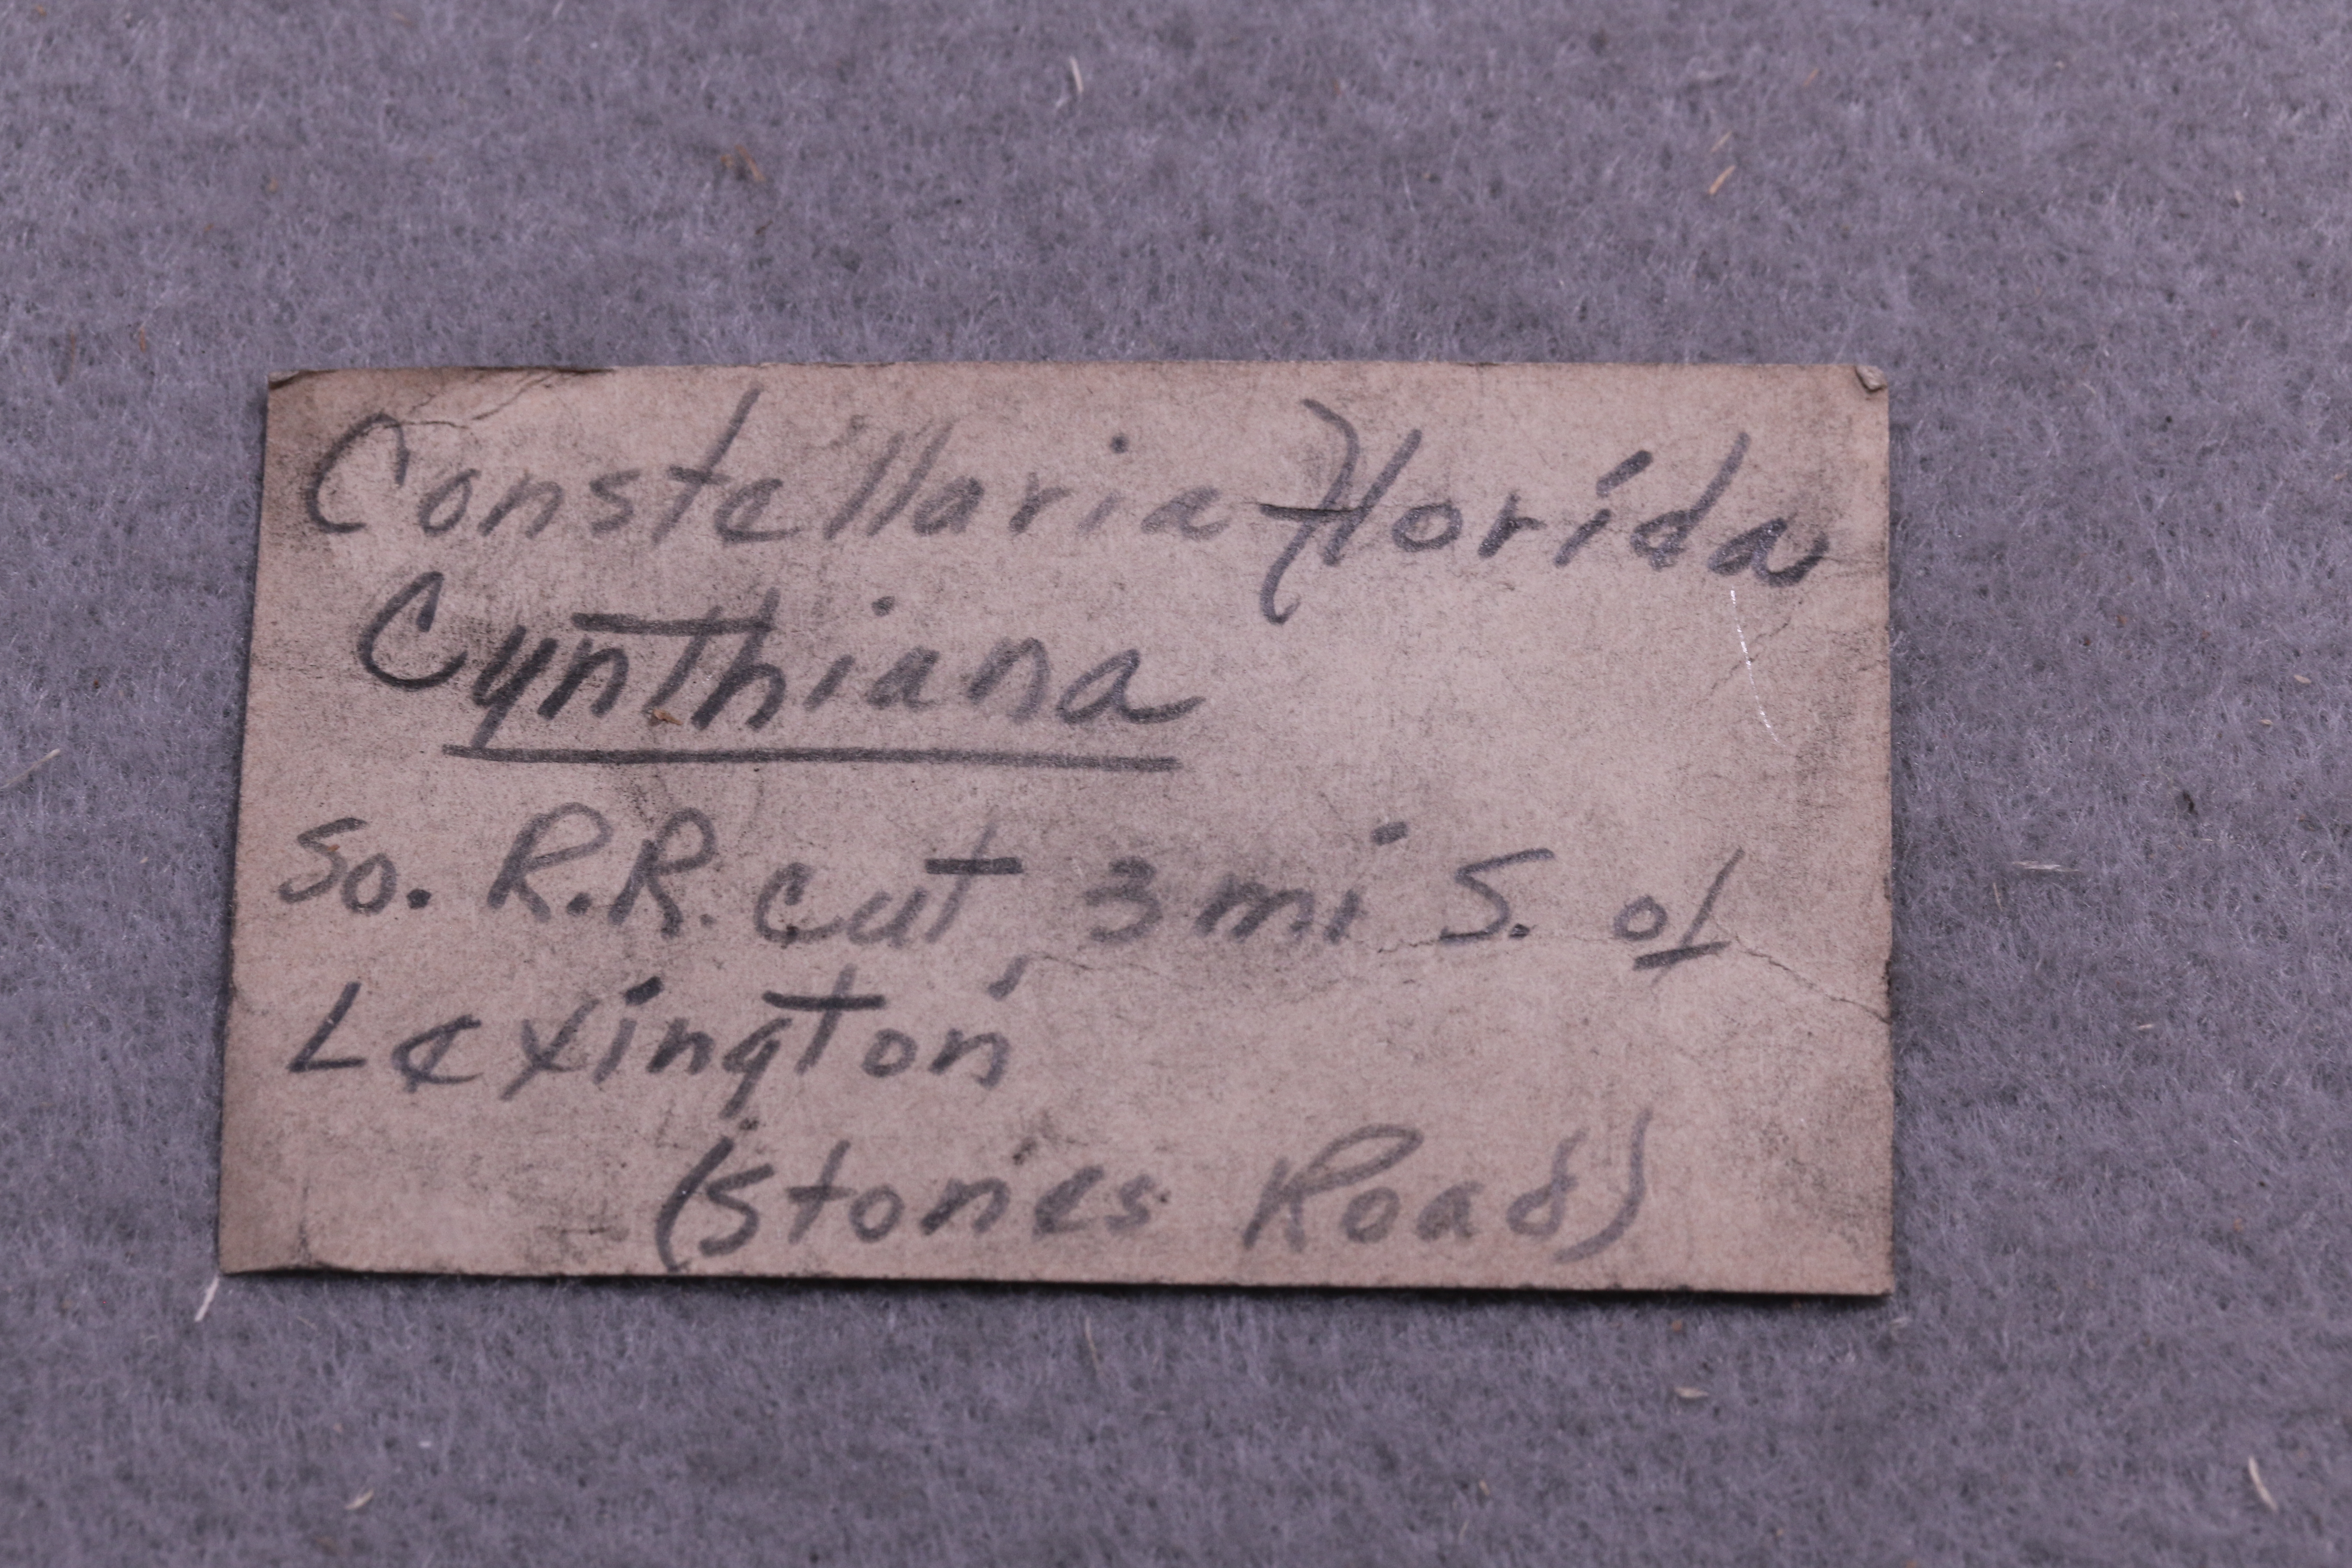 Constellaria florida
Cynthiana
So. R.R. cut, 3 mi S. of
Lexington
(Stones Road)